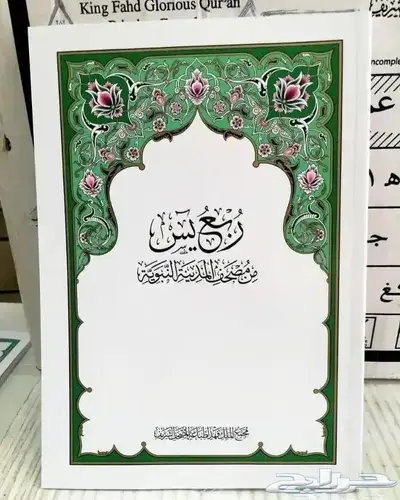 King Fahd Glorious Qur'an
رُبعُ يسٓ
مِن مُصْحَفِ المَدِينَةِ النَّبَوِيَّةِ
مجمع الملك فهد لطباعة المصحف الشريف
incomple
حراج